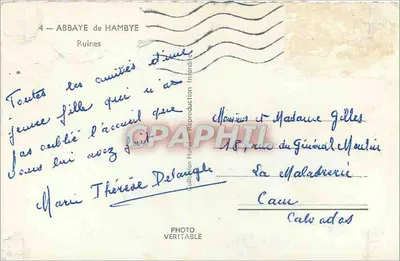 4 — ABBAYE de HAMBYE
Ruines
Toutes les amitiés d'une
jeune fille qui n'a
pas oublié l'accueil que
vous lui avez fait.
Marie Thérèse Delangle
Reproduction Interdite
CPAPHIL
Monsieur et Madame Gilles
18, rue du Général Moulin
La Maladrerie
Caen
Calvados
PHOTO
VÉRITABLE